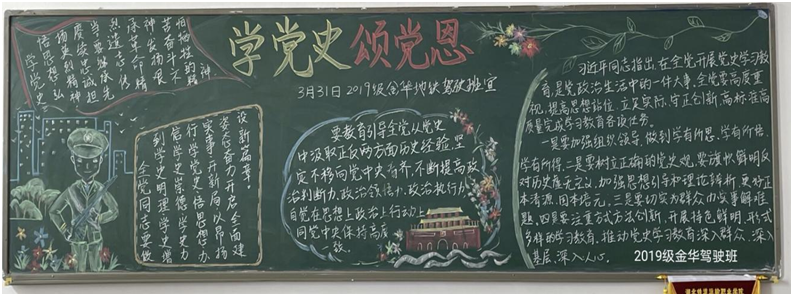 学党史 颂党恩
3月31日 2019级金华地铁驾驶班宣
学党史
悟思想 弘
扬英烈精神
当要继承先
烈遗志传
承革命精
神发扬艰
苦奋斗不
怕牺牲的精
神
全党同志要做
到学史明理学史增
信学史崇德学史力
行学党史悟思想办
实事开新局以昂扬
姿态奋力开启全面建
设新篇章。
要教育引导全党从党史
中汲取正反两方面历史经验,坚
定不移向党中央看齐,不断提高政
治判断力,政治领悟力,政治执行力
自觉在思想上政治上行动上
同党中央保持高度一
致。
习近平同志指出,在全党开展党史学习教
育,是党政治生活中的一件大事,全党要高度重
视,提高思想站位,立足实际,守正创新,高标准高
质量完成学习教育各项任务。
一是要加强组织领导,做到学有所思,学有所悟,
学有所得,二是要树立正确的党史观,要旗帜鲜明反
对历史虚无主义,加强思想引导和理论辨析,更好正
本清源,固本培元,三是要切实为群众办实事解难
题,四是要注重方式方法创新,开展特色鲜明,形式
多样的学习教育,推动党史学习教育深入群众,深入
基层,深入人心。
2019级金华驾驶班